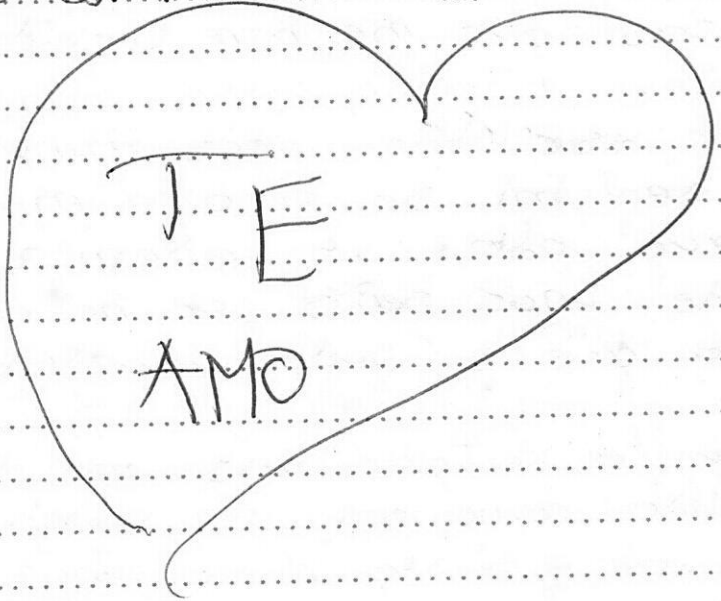 TE
AMO